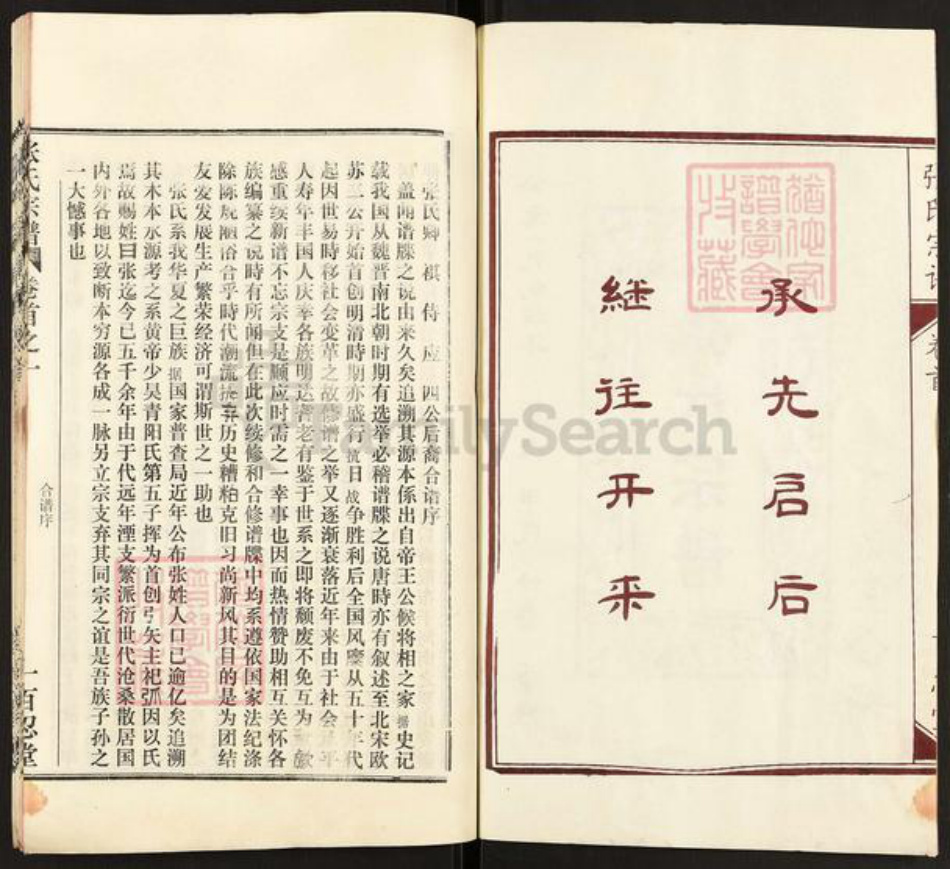 张氏宗谱
卷首
承先启后
继往开来
猶他家譜學會收藏
张氏卿祺侍应四公后裔合谱序
盖闻谱牒之说由来久矣追溯其源本係出自帝王公候将相之家据史记
载我国从魏晋南北朝时期有选举必稽谱牒之说唐時亦有叙述至北宋欧
苏二公开始首创明清時期亦盛行抗日战争胜利后全国风靡从五十年代
起因世易時移社会变革之故修谱之举又逐渐衰落近年来由于社会平
人寿年丰国人庆幸各族明达耆老有鉴于世系之即将颓废不免互为歉
感重续新谱不忘宗支是顺应时需之一幸事也因而热情赞助相互关怀各
族编纂之说時有所闻但在此次续修和合修谱牒中均系遵依国家法纪涤
除陈规陋俗合乎時代潮流摈弃历史糟粕克旧习尚新风其目的是为团结
友爱发展生产繁荣经济可谓斯世之一助也
张氏系我华夏之巨族据国家普查局近年公布张姓人口已逾亿矣追溯
其木本水源考之系黄帝少昊青阳氏第五子挥为首创弓矢主祀弧因以氏
焉故赐姓曰张迄今已五千余年由于代远年湮支繁派衍世代沧桑散居国
内外各地以致断本穷源各成一脉另立宗支弃其同宗之谊是吾族子孙之
一大憾事也
张氏宗谱
卷首之一
合谱序
百忍堂
FamilySearch